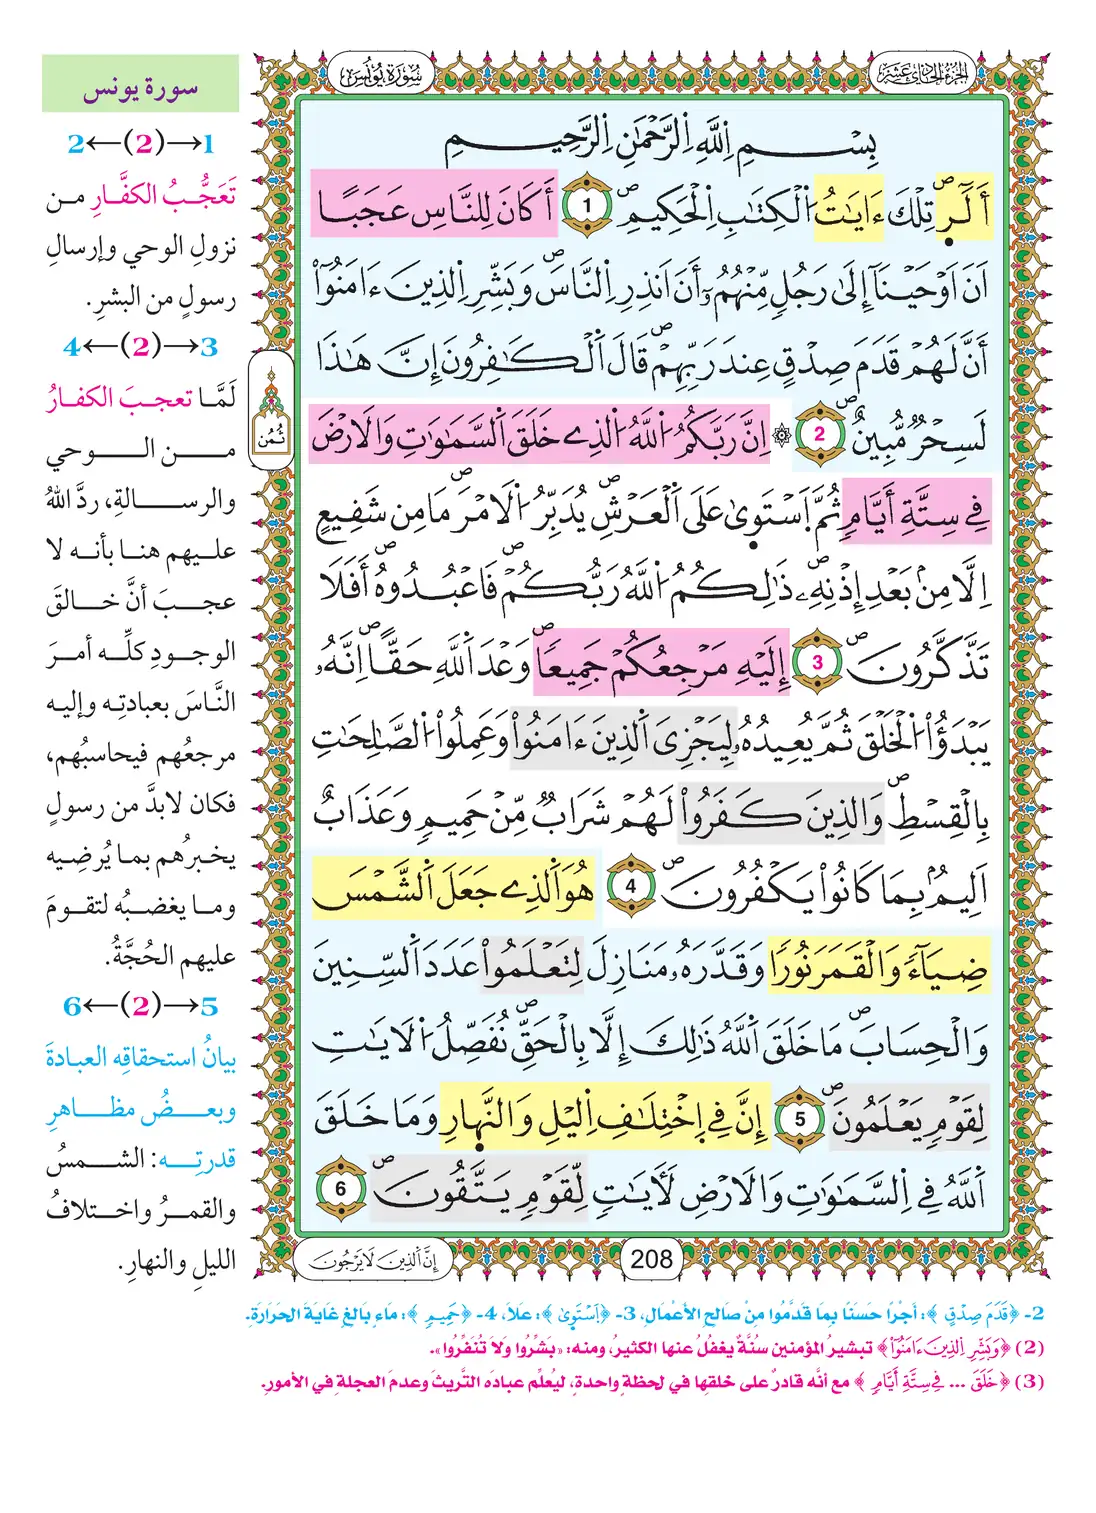 الجزء الحادي عشر
سورة يونس
بِسْمِ اِللَّهِ اِلرَّحْمَٰنِ اِلرَّحِيمِ
أَلَٓر۪ۖ تِلْكَ ءَايَٰتُ اُ۬لْكِتَٰبِ اِ۬لْحَكِيمِۖ 1 أَكَانَ لِلنَّاسِ عَجَبًا
اَنَ اَوْحَيْنَآ إِلَىٰ رَجُلٖ مِّنْهُمُۥٓ أَنَ اَنذِرِ اِ۬لنَّاسَۖ وَبَشِّرِ اِ۬لذِينَ ءَامَنُوٓاْ
أَنَّ لَهُمْ قَدَمَ صِدْقٍ عِندَ رَبِّهِمْۖ قَالَ اَ۬لْكَٰفِرُونَ إِنَّ هَٰذَا
لَسِحْرٞ مُّبِينٌۖ 2 ۞ اِنَّ رَبَّكُمُ اُ۬للَّهُ اُ۬لذِے خَلَقَ اَ۬لسَّمَٰوَٰتِ وَالَارْضَ
فِے سِتَّةِ أَيَّامٖ ثُمَّ اَ۪سْتَو۪ىٰ عَلَى اَ۬لْعَرْشِۖ يُدَبِّرُ اُ۬لَامْرَۖ مَا مِن شَفِيعٍ
اِلَّا مِنۢ بَعْدِ إِذْنِهِۦۖ ذَٰلِكُمُ اُ۬للَّهُ رَبُّكُمْۖ فَاعْبُدُوهُۖ أَفَلَا
تَذَّكَّرُونَۖ 3 إِلَيْهِ مَرْجِعُكُمْ جَمِيعاًۖ وَعْدَ اَ۬للَّهِ حَقّاًۖ اِنَّهُۥ
يَبْدَؤُاْ اُ۬لْخَلْقَ ثُمَّ يُعِيدُهُۥ لِيَجْزِيَ اَ۬لذِينَ ءَامَنُواْ وَعَمِلُواْ اُ۬لصَّٰلِحَٰتِ
بِالْقِسْطِۖ وَالذِينَ كَفَرُواْ لَهُمْ شَرَابٞ مِّنْ حَمِيمٖ وَعَذَابٌ
اَلِيمُۢ بِمَا كَانُواْ يَكْفُرُونَۖ 4 هُوَ اَ۬لذِے جَعَلَ اَ۬لشَّمْسَ
ضِيَآءٗ وَالْقَمَرَ نُورٗا وَقَدَّرَهُۥ مَنَازِلَ لِتَعْلَمُواْ عَدَدَ اَ۬لسِّنِينَ
وَالْحِسَابَۖ مَا خَلَقَ اَ۬للَّهُ ذَٰلِكَ إِلَّا بِالْحَقِّۖ نُفَصِّلُ اُ۬لَايَٰتِ
لِقَوْمٖ يَعْلَمُونَۖ 5 إِنَّ فِے اِ۪خْتِلَٰفِ اِ۬ليْلِ وَالنَّه۪ارِ وَمَا خَلَقَ
اَ۬للَّهُ فِے اِ۬لسَّمَٰوَٰتِ وَالَارْضِ لَأٓيَٰتٖ لِّقَوْمٖ يَتَّقُونَۖ 6
ثُمُن
208
إِنَّ اَ۬لذِينَ لَا يَرْجُونَ
سورة يونس
1→(2)←2
تَعَجُّبُ الكفَّارِ من
نزولِ الوحي وإرسالِ
رسولٍ من البشرِ.
3→(2)←4
لَمَّا تعجبَ الكفارُ
من الوحي
والرسالةِ، ردَّ اللهُ
عليهم هنا بأنه لا
عجبَ أنَّ خالقَ
الوجودِ كلِّه أمرَ
النَّاسَ بعبادتِه وإليه
مرجعُهم فيحاسبُهم،
فكان لابدَّ من رسولٍ
يخبرُهم بما يُرضِيه
وما يغضبُه لتقومَ
عليهم الحُجَّةُ.
5→(2)←6
بيانُ استحقاقِه العبادةَ
وبعضُ مظاهرِ
قدرتِه: الشمسُ
والقمرُ واختلافُ
الليلِ والنهارِ.
2- ﴿قَدَمَ صِدْقٍ﴾: أَجْرًا حَسَنًا بِمَا قَدَّمُوا مِنْ صَالِحِ الأَعْمَالِ، 3- ﴿اَ۪سْتَو۪ىٰ﴾: عَلاَ، 4- ﴿حَمِيمٖ﴾: مَاءٍ بَالِغٍ غَايَةَ الحَرَارَةِ.
(2) ﴿وَبَشِّرِ اِ۬لذِينَ ءَامَنُوٓاْ﴾ تبشيرُ المؤمنين سُنَّةٌ يغفُلُ عنها الكثيرُ، ومنه: «بَشِّرُوا وَلَا تُنَفِّرُوا».
(3) ﴿خَلَقَ ... فِے سِتَّةِ أَيَّامٖ﴾ مع أنَّه قادرٌ على خلقِها في لحظةٍ واحدةٍ، ليُعلِّم عبادَه التَّريثَ وعدمَ العجلةِ في الأمورِ.